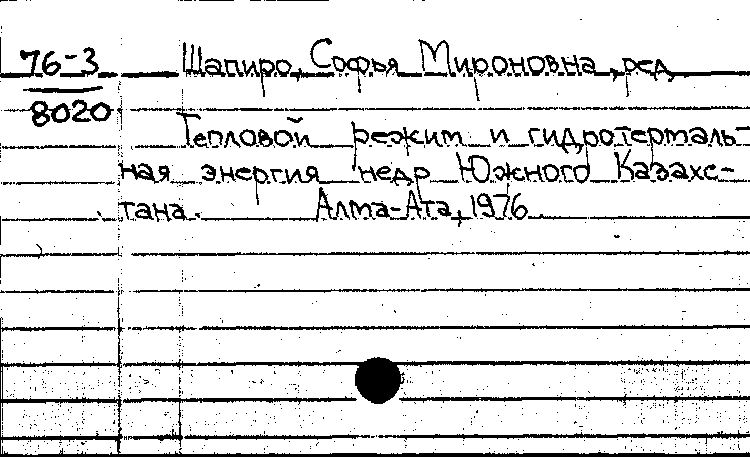 76-3 Шапиро, Софья Мироновна, ред.
8020
Тепловой режим и гидротермаль-
ная энергия недр Южного Казахс-
тана. Алма-Ата, 1976.